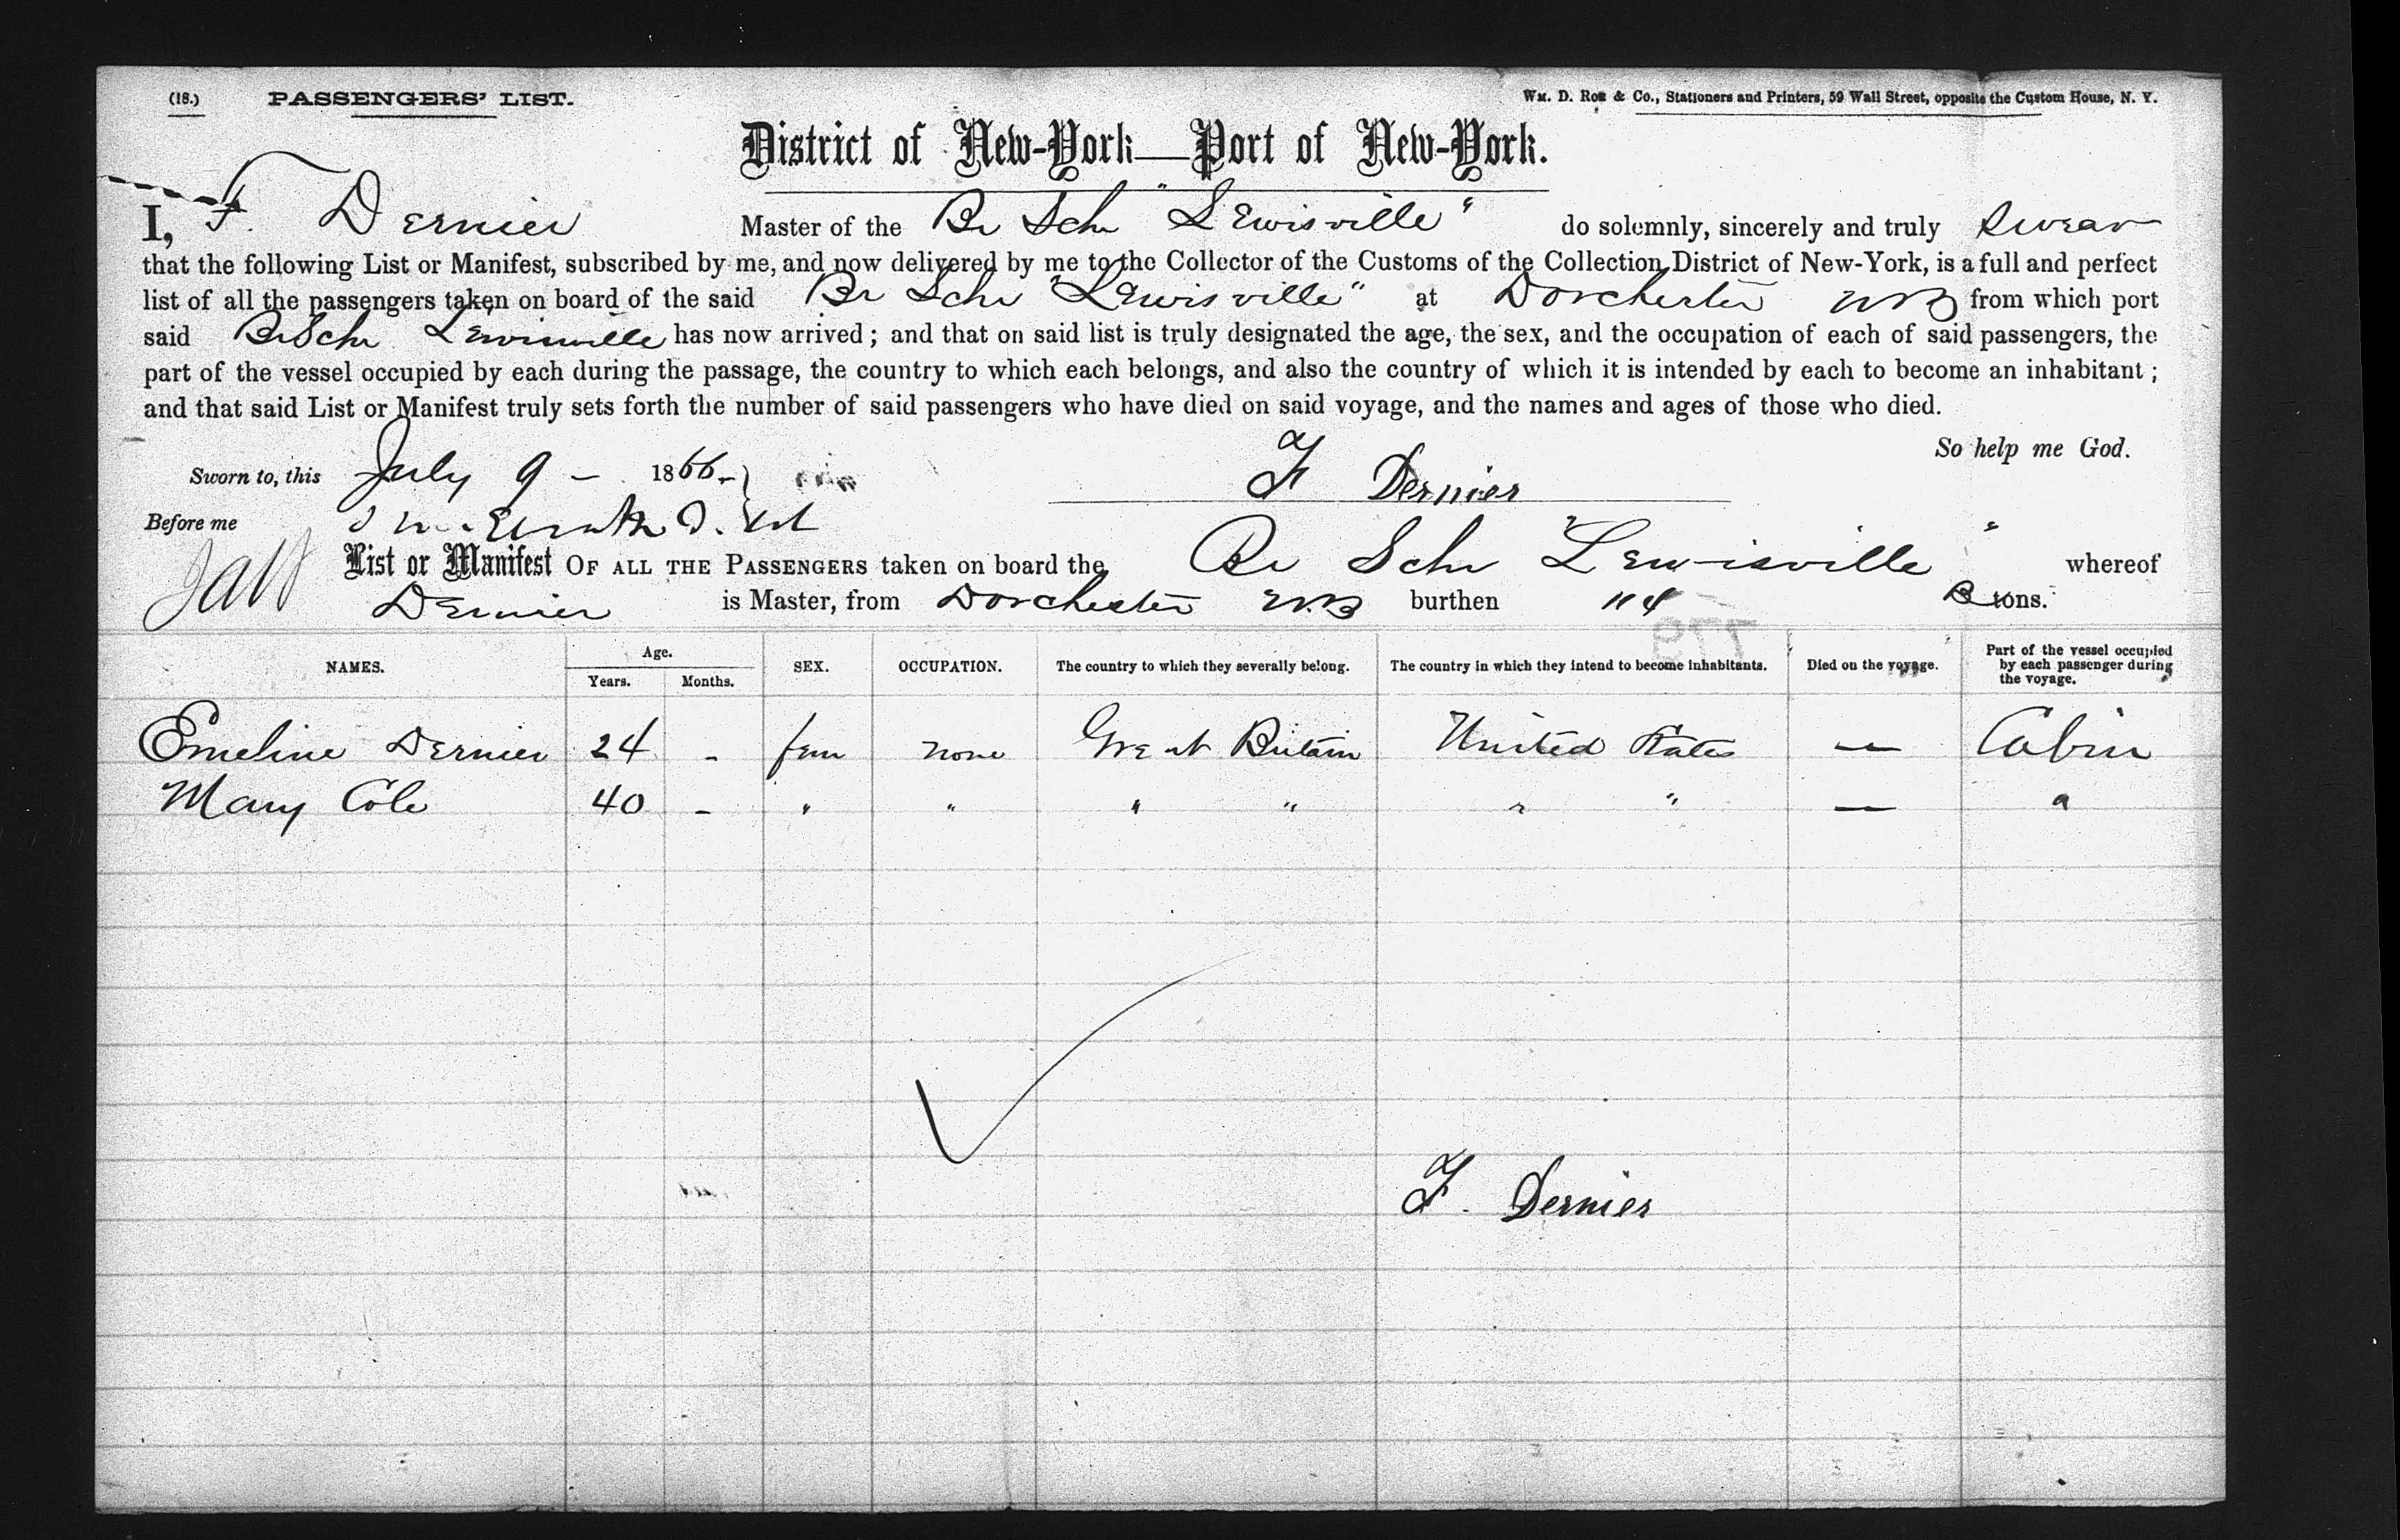 (18.) PASSENGERS' LIST. Wm. D. Roe & Co., Stationers and Printers, 59 Wall Street, opposite the Custom House, N. Y.
District of New-York—Port of New-York.
I, F. Dernier Master of the Br Schr "Lewisville" do solemnly, sincerely and truly swear
that the following List or Manifest, subscribed by me, and now delivered by me to the Collector of the Customs of the Collection District of New-York, is a full and perfect
list of all the passengers taken on board of the said Br Schr "Lewisville" at Dorchester NB from which port
said Br Schr Lewisville has now arrived; and that on said list is truly designated the age, the sex, and the occupation of each of said passengers, the
part of the vessel occupied by each during the passage, the country to which each belongs, and also the country of which it is intended by each to become an inhabitant;
and that said List or Manifest truly sets forth the number of said passengers who have died on said voyage, and the names and ages of those who died.
So help me God.
Sworn to, this July 9 - 1866 - F Dernier
Before me
List or Manifest OF ALL THE PASSENGERS taken on board the Br Schr "Lewisville" whereof
Dernier is Master, from Dorchester N.B burthen 114 B tons.
NAMES. Age. Years. Months. SEX. OCCUPATION. The country to which they severally belong. The country in which they intend to become inhabitants. Died on the voyage. Part of the vessel occupied by each passenger during the voyage.
Emeline Dernier 24 - fem none Great Britain United States — Cabin
Mary Cole 40 - " " " " " " — "
F. Dernier